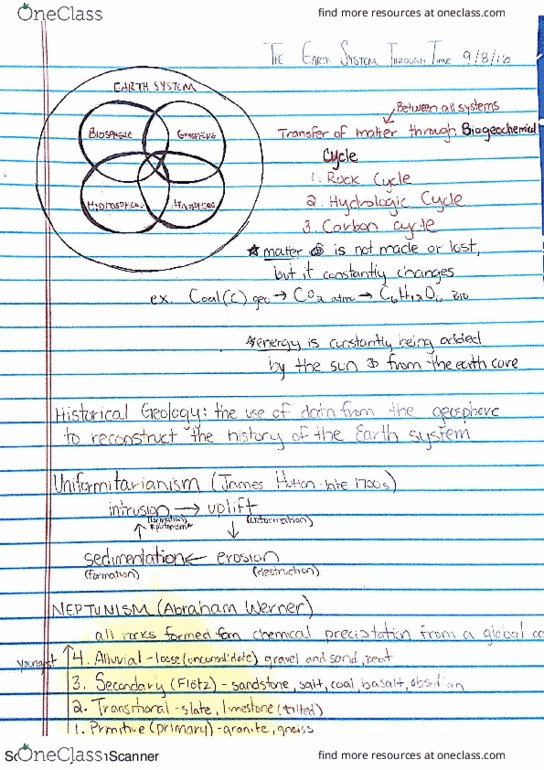 OneClass
find more resources at oneclass.com
THE EARTH SYSTEM THROUGH TIME 9/8/16
EARTH SYSTEM
Between all systems
BIOSPHERE
Transfer of matter through Biogeochemical
Cycle
1. Rock Cycle
2. Hydrologic Cycle
3. Carbon cycle
matter is not made or lost,
but it constantly changes
ex. Coal(C) geo → CO2 atm → C6H12O6 Bio
energy is constantly being added
by the sun & from the earth core
Historical Geology: the use of data from the geosphere
to reconstruct the history of the Earth system
Uniformitarianism (James Hutton-late 1700s)
intrusion → uplift
sedimentation ← erosion
(formation) (destruction)
NEPTUNISM (Abraham Werner)
all rocks formed from chemical precipitation from a global
youngest 4. Alluvial - loose (unconsolidate) gravel and sand, peat
3. Secondary (Flötz) - sandstone, salt, coal, basalt, obsidian
2. Transitional - slate, limestone (tilted)
1. Primitive (primary) - granite, gneiss
OneClass
Scanner
find more resources at oneclass.com